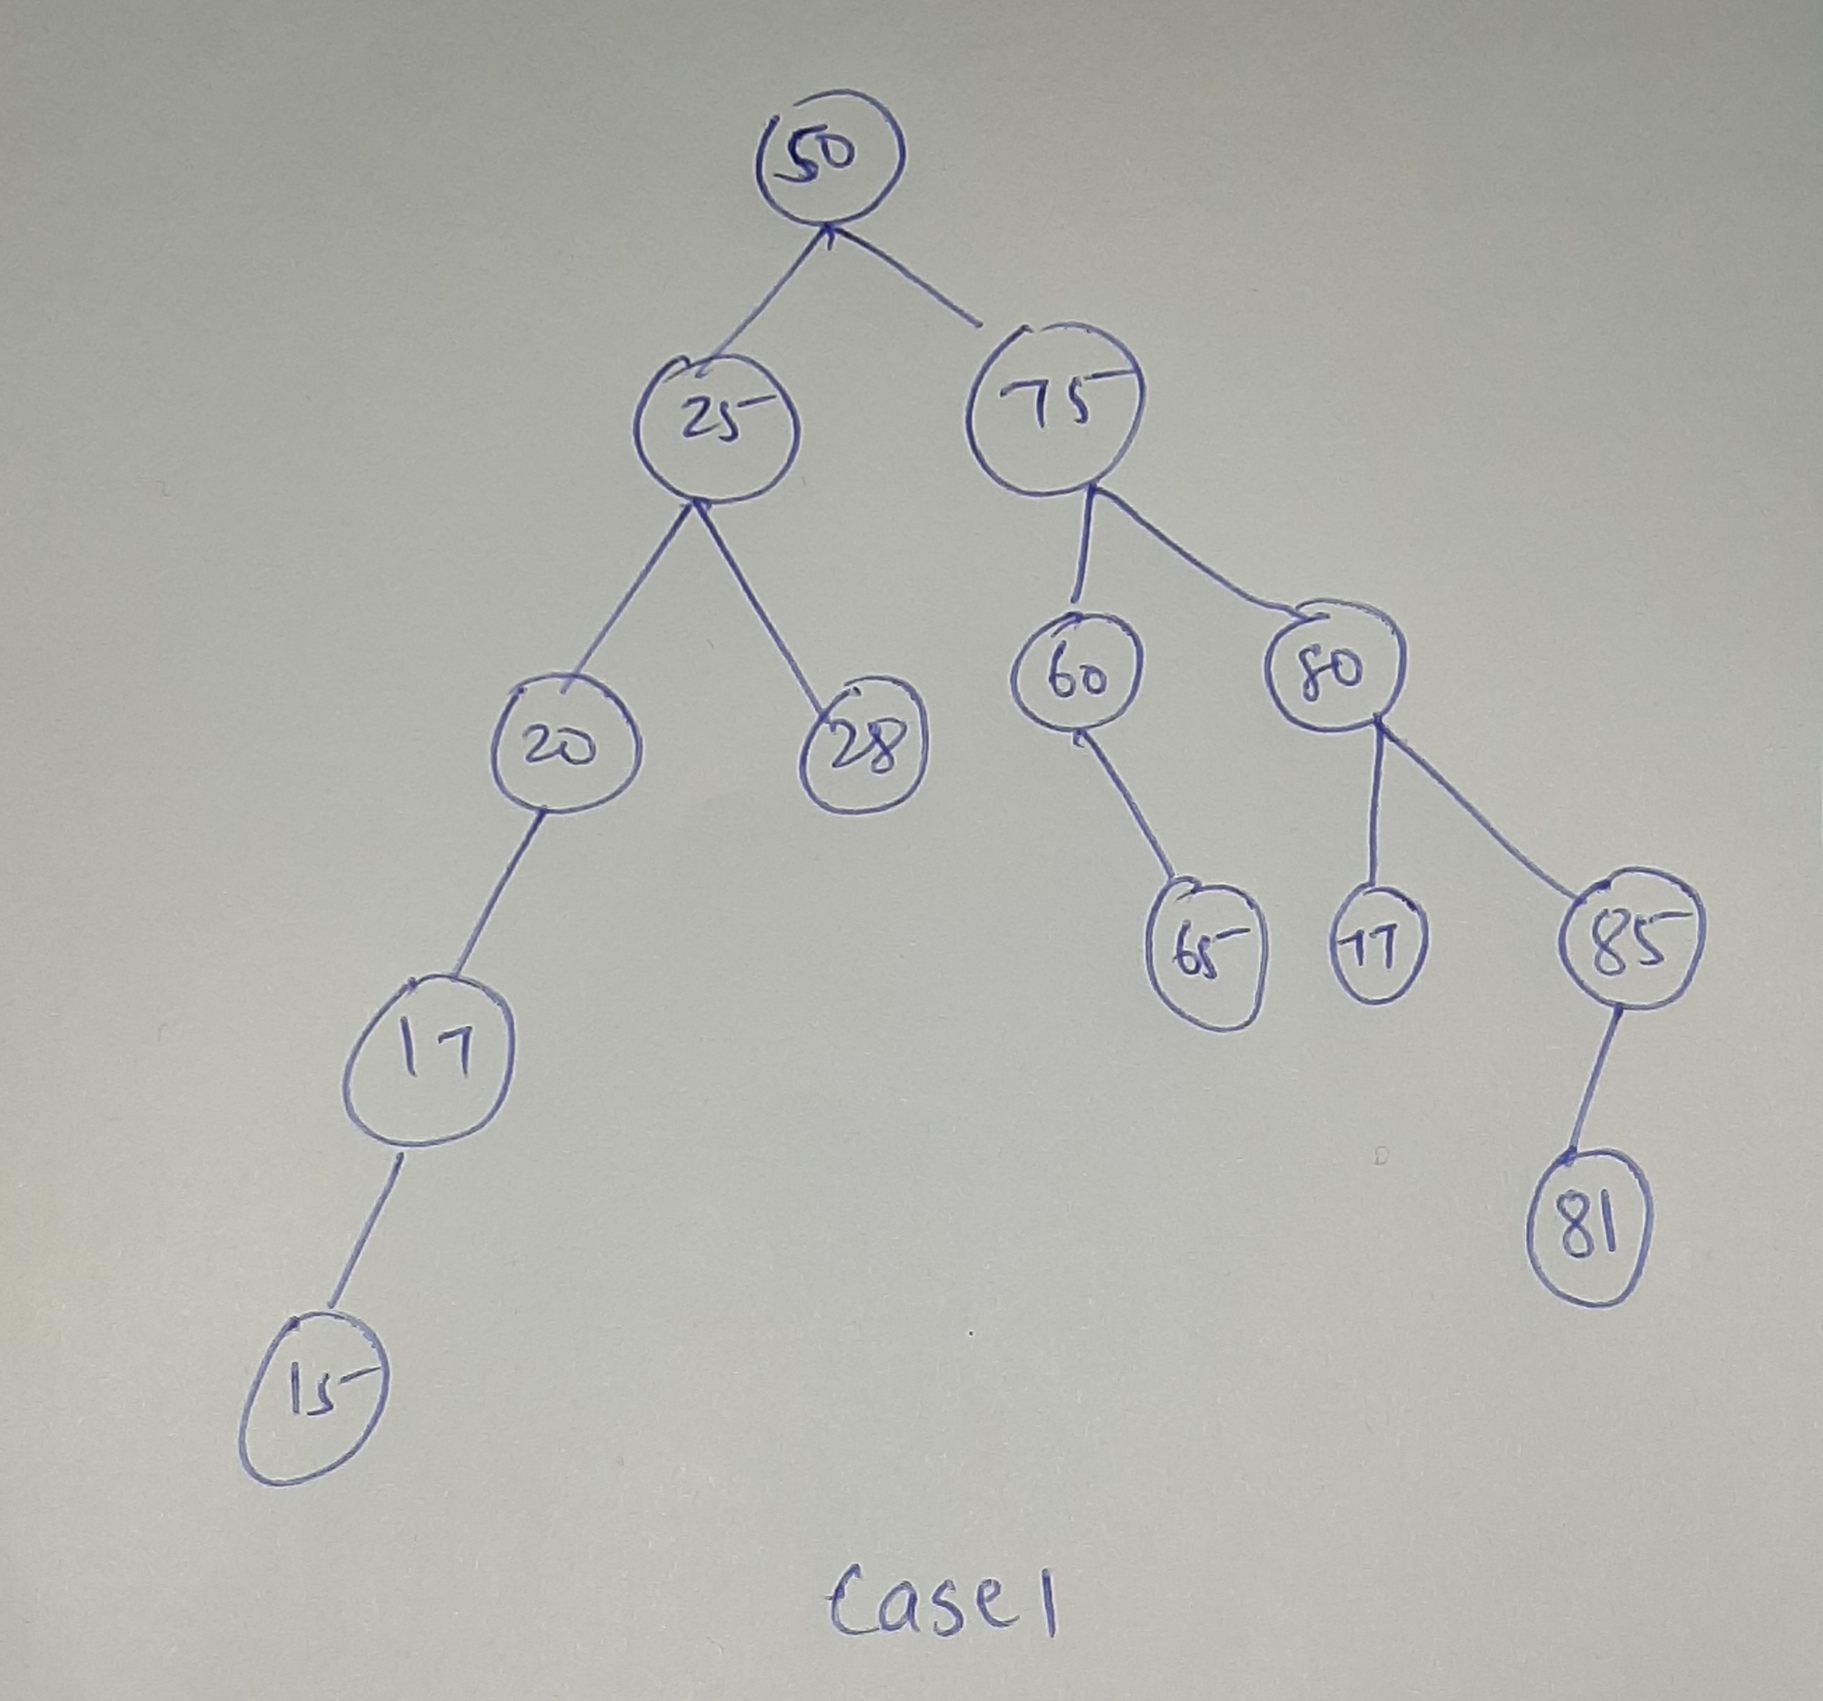 50
25 75
20 28 60 80
17 65 77 85
15 81
Case 1